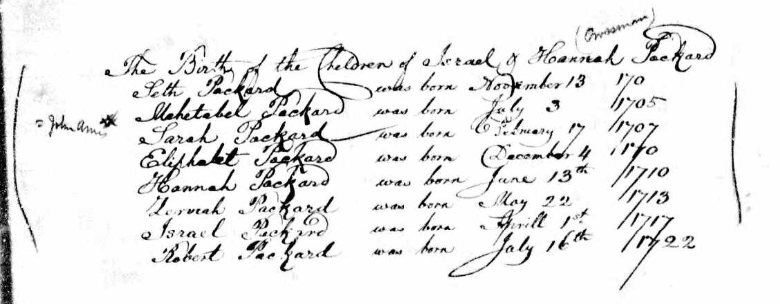 (Crossman)
The Birth of the Children of Israel & Hannah Packard
Seth Packard was born November 13 170
Mehetabel Packard was born July 3 /1705
= John Ames
Sarah Packard was born February 17 /1707
Eliphalet Packard was born December 4 /1710
Hannah Packard was born June 13th /1710
Packard was born May 22 /1713
Israel Packard was born Aprill 1st /1717
Robert Packard was born July 16th /1722